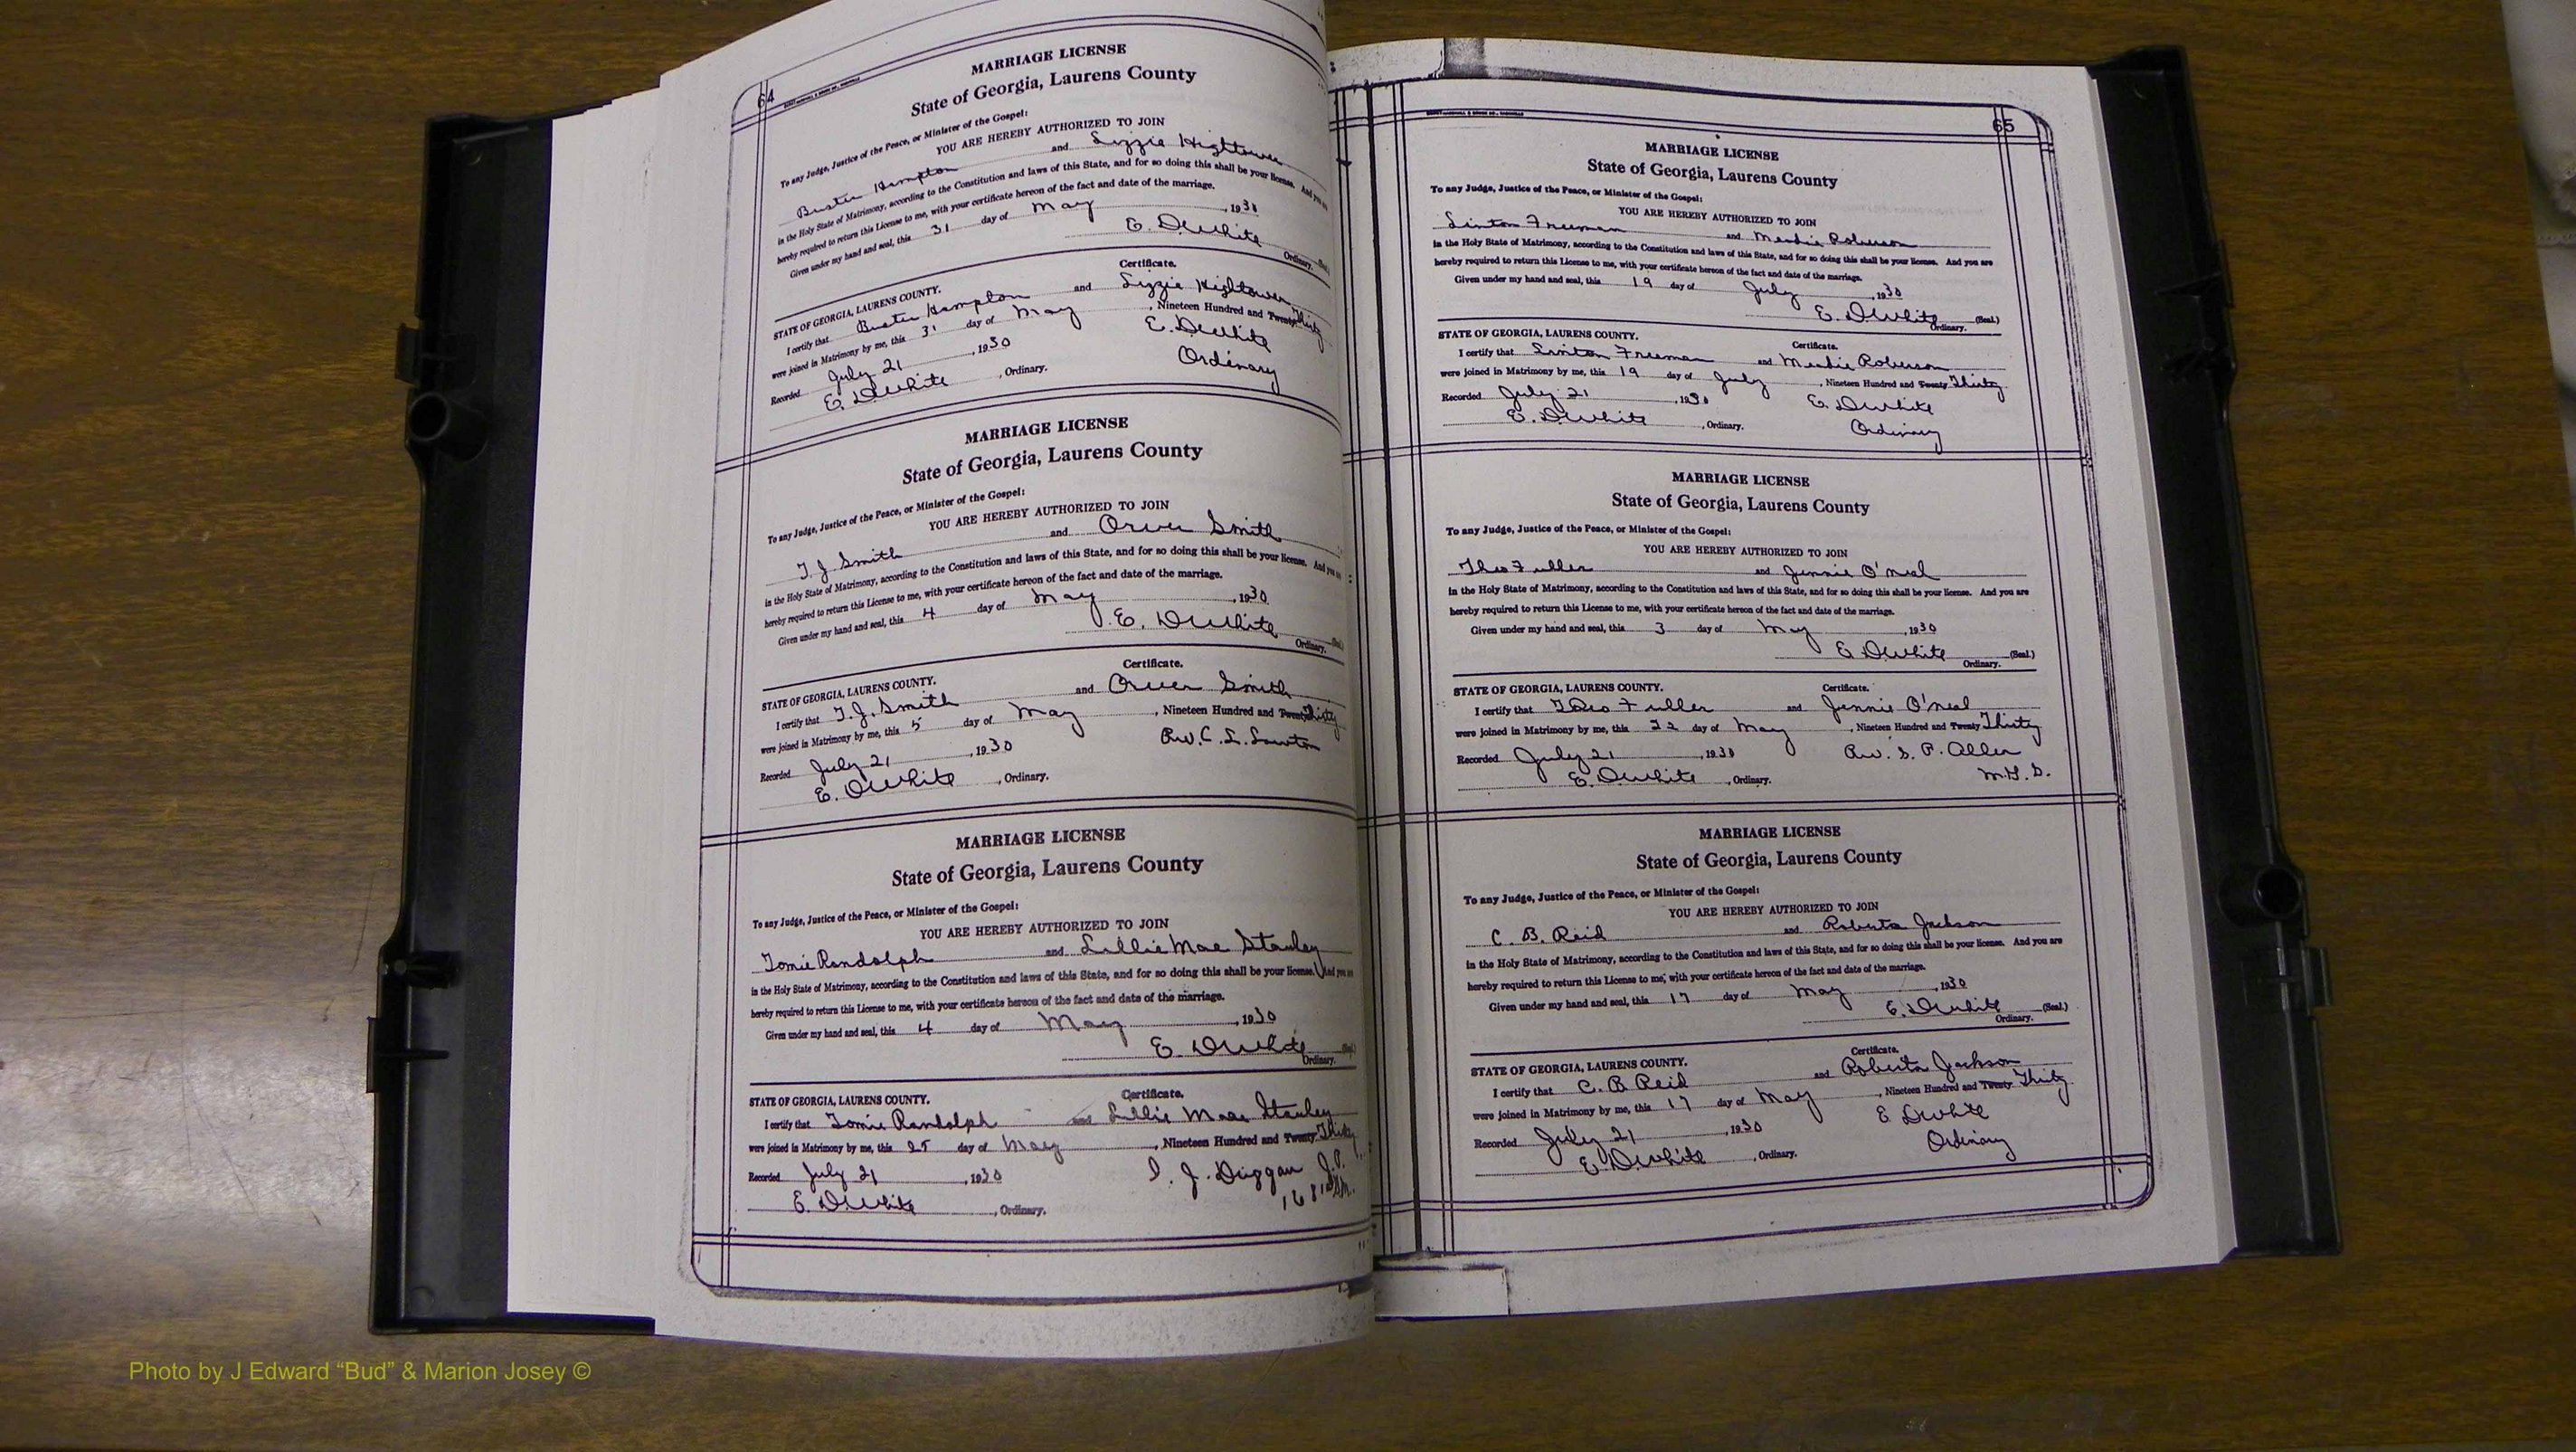 64
MARRIAGE LICENSE
State of Georgia, Laurens County
To any Judge, Justice of the Peace, or Minister of the Gospel:
YOU ARE HEREBY AUTHORIZED TO JOIN
Buster Hampton and Lizzie Hightower
in the Holy State of Matrimony, according to the Constitution and laws of this State, and for so doing this shall be your license. And you
hereby required to return this License to me, with your certificate hereon of the fact and date of the marriage.
Given under my hand and seal, this 31 day of May, 1930
E. D White
Ordinary. (Seal)
Certificate.
STATE OF GEORGIA, LAURENS COUNTY.
I certify that Buster Hampton and Lizzie Hightower
were joined in Matrimony by me, this 31 day of May, Nineteen Hundred and Twenty Thirty
Recorded July 21, 1930 E. D White
E. D White, Ordinary. Ordinary
MARRIAGE LICENSE
State of Georgia, Laurens County
To any Judge, Justice of the Peace, or Minister of the Gospel:
YOU ARE HEREBY AUTHORIZED TO JOIN
T. J Smith and Smith
in the Holy State of Matrimony, according to the Constitution and laws of this State, and for so doing this shall be your license. And you
hereby required to return this License to me, with your certificate hereon of the fact and date of the marriage.
Given under my hand and seal, this 4 day of May, 1930
E. D White
Ordinary. (Seal)
Certificate.
STATE OF GEORGIA, LAURENS COUNTY.
I certify that T. J. Smith and Smith
were joined in Matrimony by me, this 5 day of May, Nineteen Hundred and Twenty Thirty
Recorded July 21, 1930 Rev. C. L.
E. D White, Ordinary.
MARRIAGE LICENSE
State of Georgia, Laurens County
To any Judge, Justice of the Peace, or Minister of the Gospel:
YOU ARE HEREBY AUTHORIZED TO JOIN
Tomie Randolph and Lillie Mae Stanley
in the Holy State of Matrimony, according to the Constitution and laws of this State, and for so doing this shall be your license. And you
hereby required to return this License to me, with your certificate hereon of the fact and date of the marriage.
Given under my hand and seal, this 4 day of May, 1930
E. D White
Ordinary. (Seal)
Certificate.
STATE OF GEORGIA, LAURENS COUNTY.
I certify that Tomie Randolph and Lillie Mae Stanley
were joined in Matrimony by me, this 25 day of May, Nineteen Hundred and Twenty Thirty
Recorded July 21, 1930 J. Duggan J.P.
E. D White, Ordinary.
65
MARRIAGE LICENSE
State of Georgia, Laurens County
To any Judge, Justice of the Peace, or Minister of the Gospel:
YOU ARE HEREBY AUTHORIZED TO JOIN
Linton Freeman and Roberson
in the Holy State of Matrimony, according to the Constitution and laws of this State, and for so doing this shall be your license. And you are
hereby required to return this License to me, with your certificate hereon of the fact and date of the marriage.
Given under my hand and seal, this 19 day of July, 1930
E. D White (Seal.)
Ordinary.
Certificate.
STATE OF GEORGIA, LAURENS COUNTY.
I certify that Linton Freeman and Roberson
were joined in Matrimony by me, this 19 day of July, Nineteen Hundred and Twenty Thirty
Recorded July 21, 1930 E. D White
E. D White, Ordinary. Ordinary
MARRIAGE LICENSE
State of Georgia, Laurens County
To any Judge, Justice of the Peace, or Minister of the Gospel:
YOU ARE HEREBY AUTHORIZED TO JOIN
Theo Fuller and Jennie O'Neal
in the Holy State of Matrimony, according to the Constitution and laws of this State, and for so doing this shall be your license. And you are
hereby required to return this License to me, with your certificate hereon of the fact and date of the marriage.
Given under my hand and seal, this 3 day of May, 1930
E D White (Seal.)
Ordinary.
Certificate.
STATE OF GEORGIA, LAURENS COUNTY.
I certify that Theo Fuller and Jennie O'Neal
were joined in Matrimony by me, this 22 day of May, Nineteen Hundred and Twenty Thirty
Recorded July 21, 1930 Rev. S. P. Allen
E. D White, Ordinary. M.G.
MARRIAGE LICENSE
State of Georgia, Laurens County
To any Judge, Justice of the Peace, or Minister of the Gospel:
YOU ARE HEREBY AUTHORIZED TO JOIN
C. B. Reid and Roberta Jackson
in the Holy State of Matrimony, according to the Constitution and laws of this State, and for so doing this shall be your license. And you are
hereby required to return this License to me, with your certificate hereon of the fact and date of the marriage.
Given under my hand and seal, this 17 day of May, 1930
E. D White (Seal.)
Ordinary.
Certificate.
STATE OF GEORGIA, LAURENS COUNTY.
I certify that C. B Reid and Roberta Jackson
were joined in Matrimony by me, this 17 day of May, Nineteen Hundred and Twenty Thirty
Recorded July 21, 1930 E D White
E. D White, Ordinary. Ordinary
Photo by J Edward “Bud” & Marion Josey ©